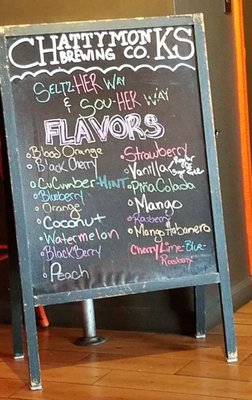 CHATTYMONKS
BREWING CO.
SELTZ-HER WAY
& SOU-HER WAY
FLAVORS
Blood Orange
Black Cherry
CUCUMBER-MINT
Blueberry
Orange
Coconut
Watermelon
BlackBerry
Peach
Strawberry
Vanilla
Piña Colada
Mango
Rasberry
Mango Habanero
Cherry-Lime-Blue-